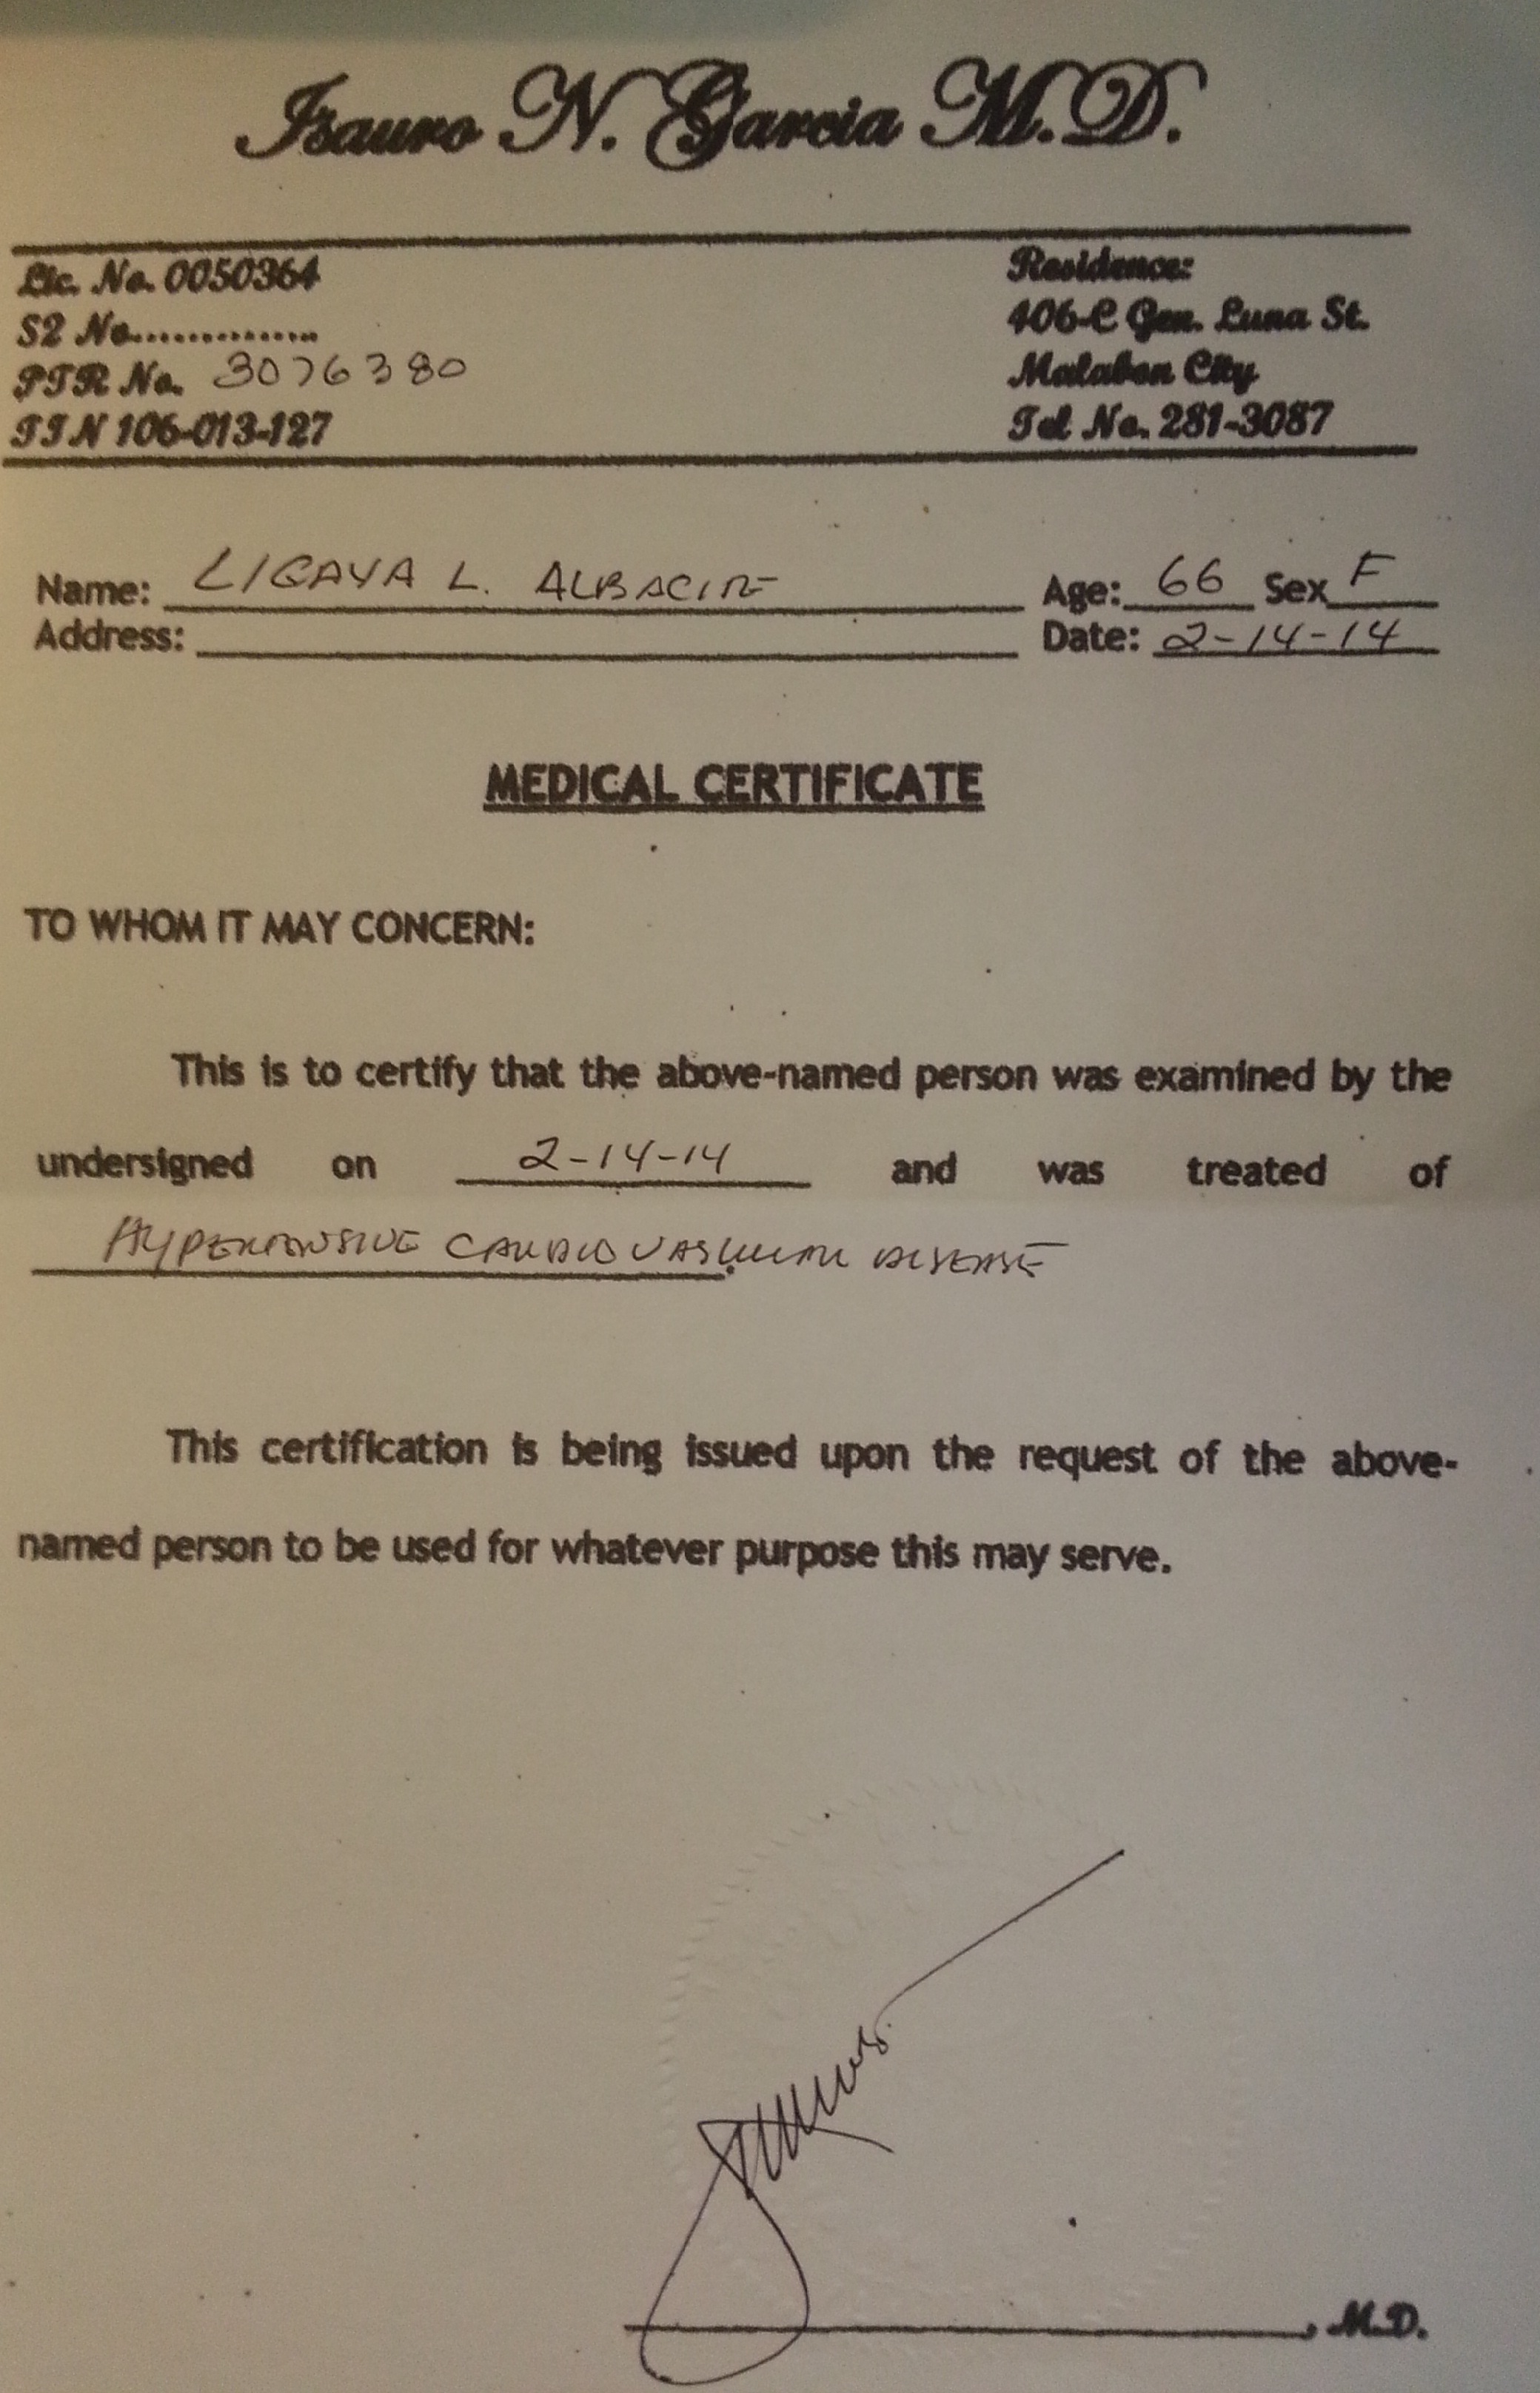 Isauro N. Garcia M.D.
Lic. No. 0050364
S2 No..............
PTR No. 3076380
TIN 106-013-127
Residence:
406-C Gen. Luna St.
Malabon City
Tel No. 281-3087
Name: LIGAYA L. Age: 66 Sex F
Address: Date: 2-14-14
MEDICAL CERTIFICATE
TO WHOM IT MAY CONCERN:
This is to certify that the above-named person was examined by the
undersigned on 2-14-14 and was treated of
HYPERTENSIVE CARDIOVASCULAR DISEASE
This certification is being issued upon the request of the above-
named person to be used for whatever purpose this may serve.
, M.D.